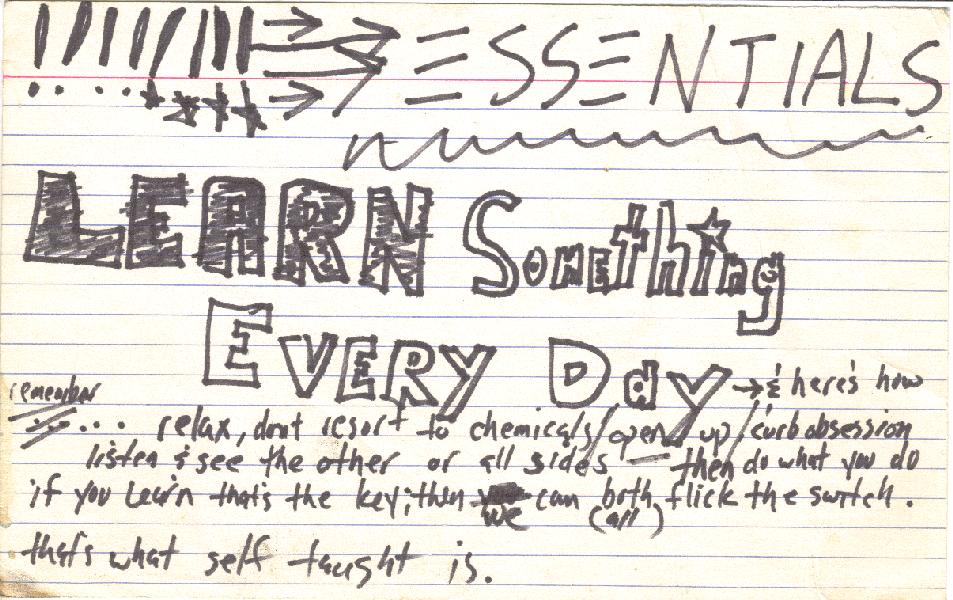 ESSENTIALS
LEARN Something
EVERY Day → & here's how
remember
... relax, dont resort to chemicals/open up/curb obsession
listen & see the other or all sides then do what you do
if you learn that's the key; then we can both (all) flick the switch.
that's what self taught is.